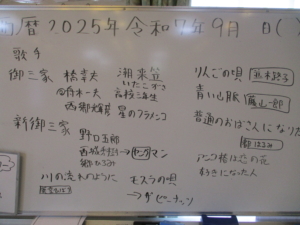 暦2025年令和7年9月 日(
歌手
御三家 橋幸夫 湘来笠
いたこがさ
舟木一夫 高校三年生
西郷輝彦 星のフラメンコ
新御三家 野口五郎
西城秀樹→ヤングマン
郷ひろみ
川の流れのように
美空ひばり
りんごの唄 並木路子
青い山脈 藤山一郎
普通のおばさんになりた
都はるみ
アンコ椿は恋の花
好きになった人
モスラの唄
→ザピーナッツ